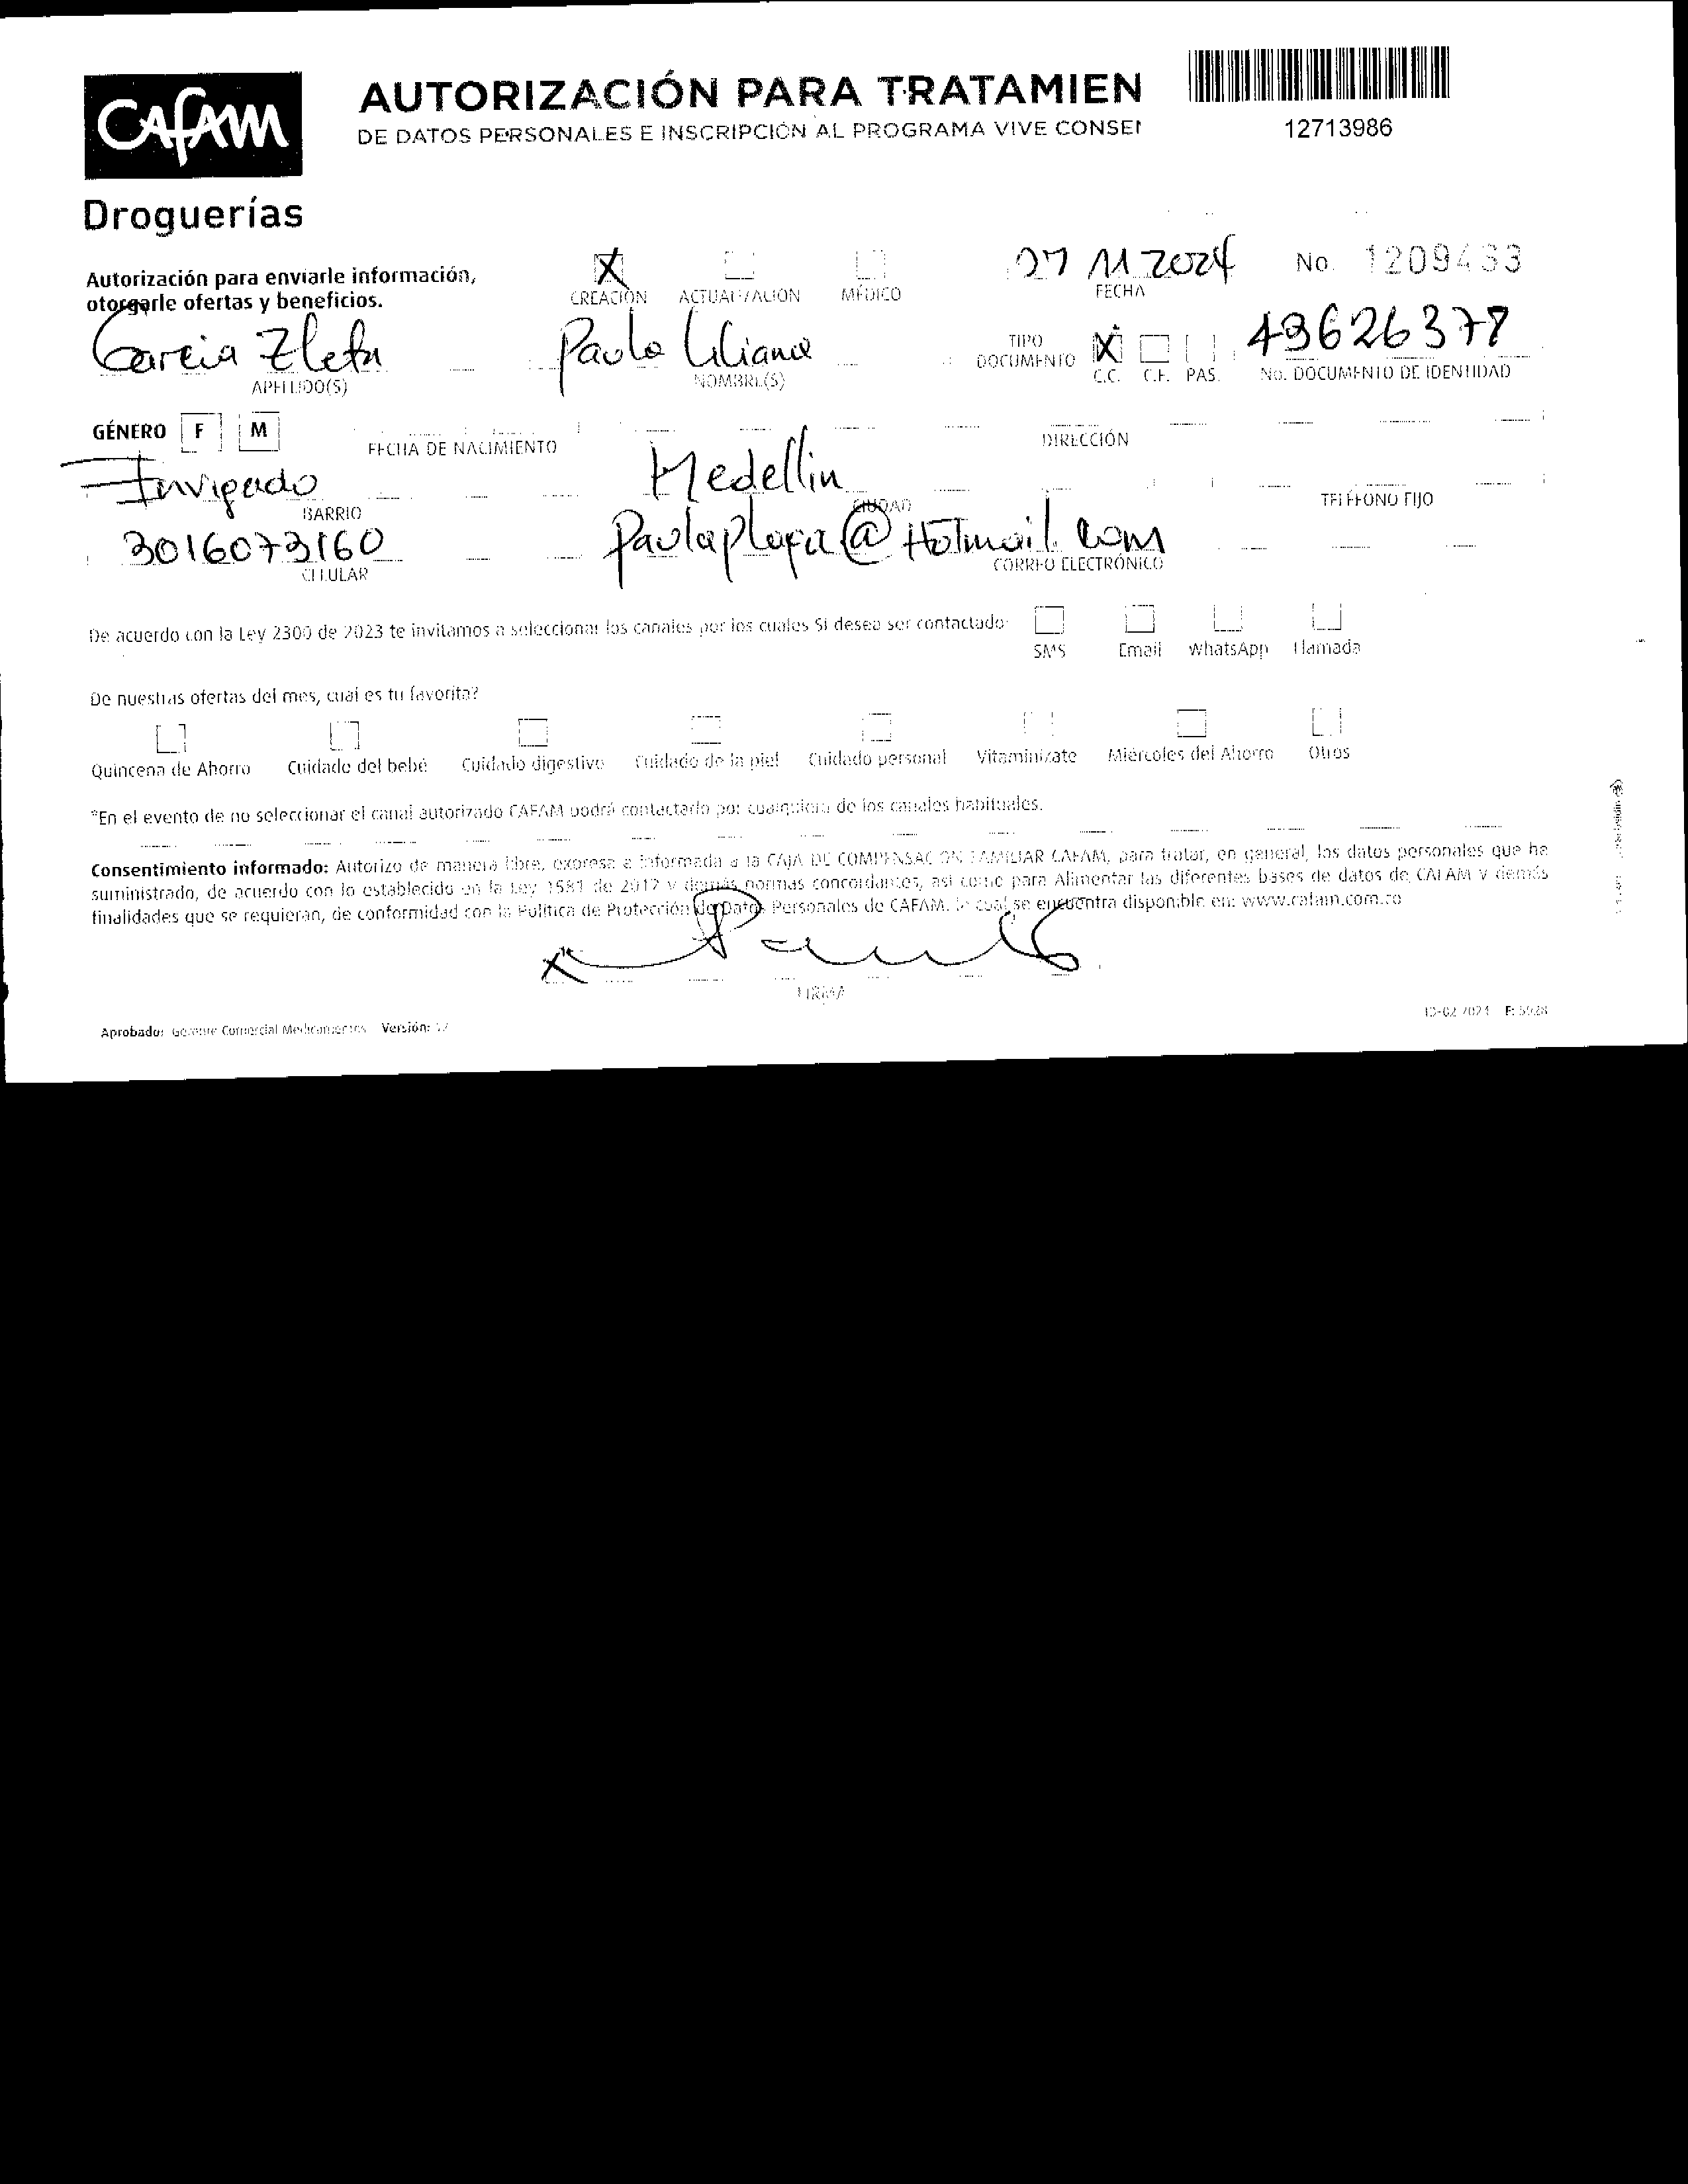 CAFAM
Droguerías
AUTORIZACIÓN PARA TRATAMIEN
DE DATOS PERSONALES E INSCRIPCIÓN AL PROGRAMA VIVE CONSEN
12713986
Autorización para enviarle información,
otorgarle ofertas y beneficios.
X
CREACIÓN ACTUALIZACIÓN MÉDICO
27 11 2024
FECHA
No. 1209433
Garcia
APELLIDO(S)
Paola Liliana
NOMBRE(S)
TIPO
DOCUMENTO
X
C.C. C.E. PAS.
43626378
No. DOCUMENTO DE IDENTIDAD
GÉNERO F M
FECHA DE NACIMIENTO
DIRECCIÓN
Envigado
BARRIO
Medellin
CIUDAD
TELÉFONO FIJO
3016073160
CELULAR
@Hotmail.com
CORREO ELECTRÓNICO
De acuerdo con la Ley 2300 de 2023 te invitamos a seleccionar los canales por los cuales Si desea ser contactado:
SMS Email WhatsApp Llamada
De nuestras ofertas del mes, cuál es tu favorita?
Quincena de Ahorro Cuidado del bebé Cuidado digestivo Cuidado de la piel Cuidado personal Vitaminízate Miércoles del Ahorro Otros
*En el evento de no seleccionar el canal autorizado CAFAM podrá contactarlo por cualquiera de los canales habituales.
Consentimiento informado: Autorizo de manera libre, expresa e informada a la CAJA DE COMPENSACION FAMILIAR CAFAM, para tratar, en general, los datos personales que he
suministrado, de acuerdo con lo establecido en la Ley 1581 de 2012 y demás normas concordantes, así como para Alimentar las diferentes bases de datos de CAFAM y demás
finalidades que se requieran, de conformidad con la Política de Protección de Datos Personales de CAFAM. la cual se encuentra disponible en: www.cafam.com.co
X
FIRMA
Aprobado: Gerente Comercial Medicamentos Versión: